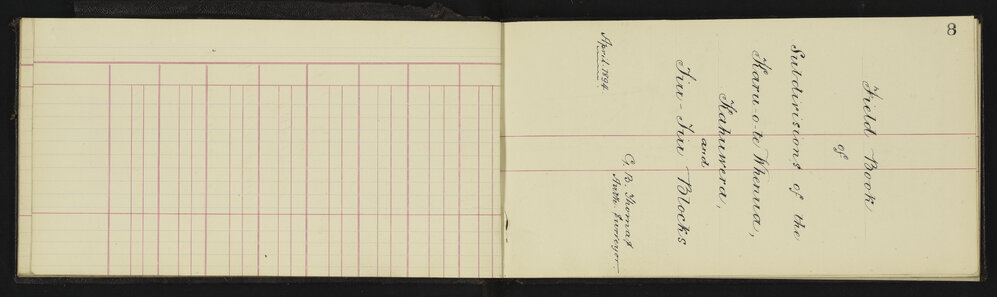 8
Field Book
of
Subdivisions of the
Karu-o-te Whenua,
Kahuwera,
and
Tiu-Tiu Blocks
April. 1894.
G. B. Thomas
Auth. Surveyor.